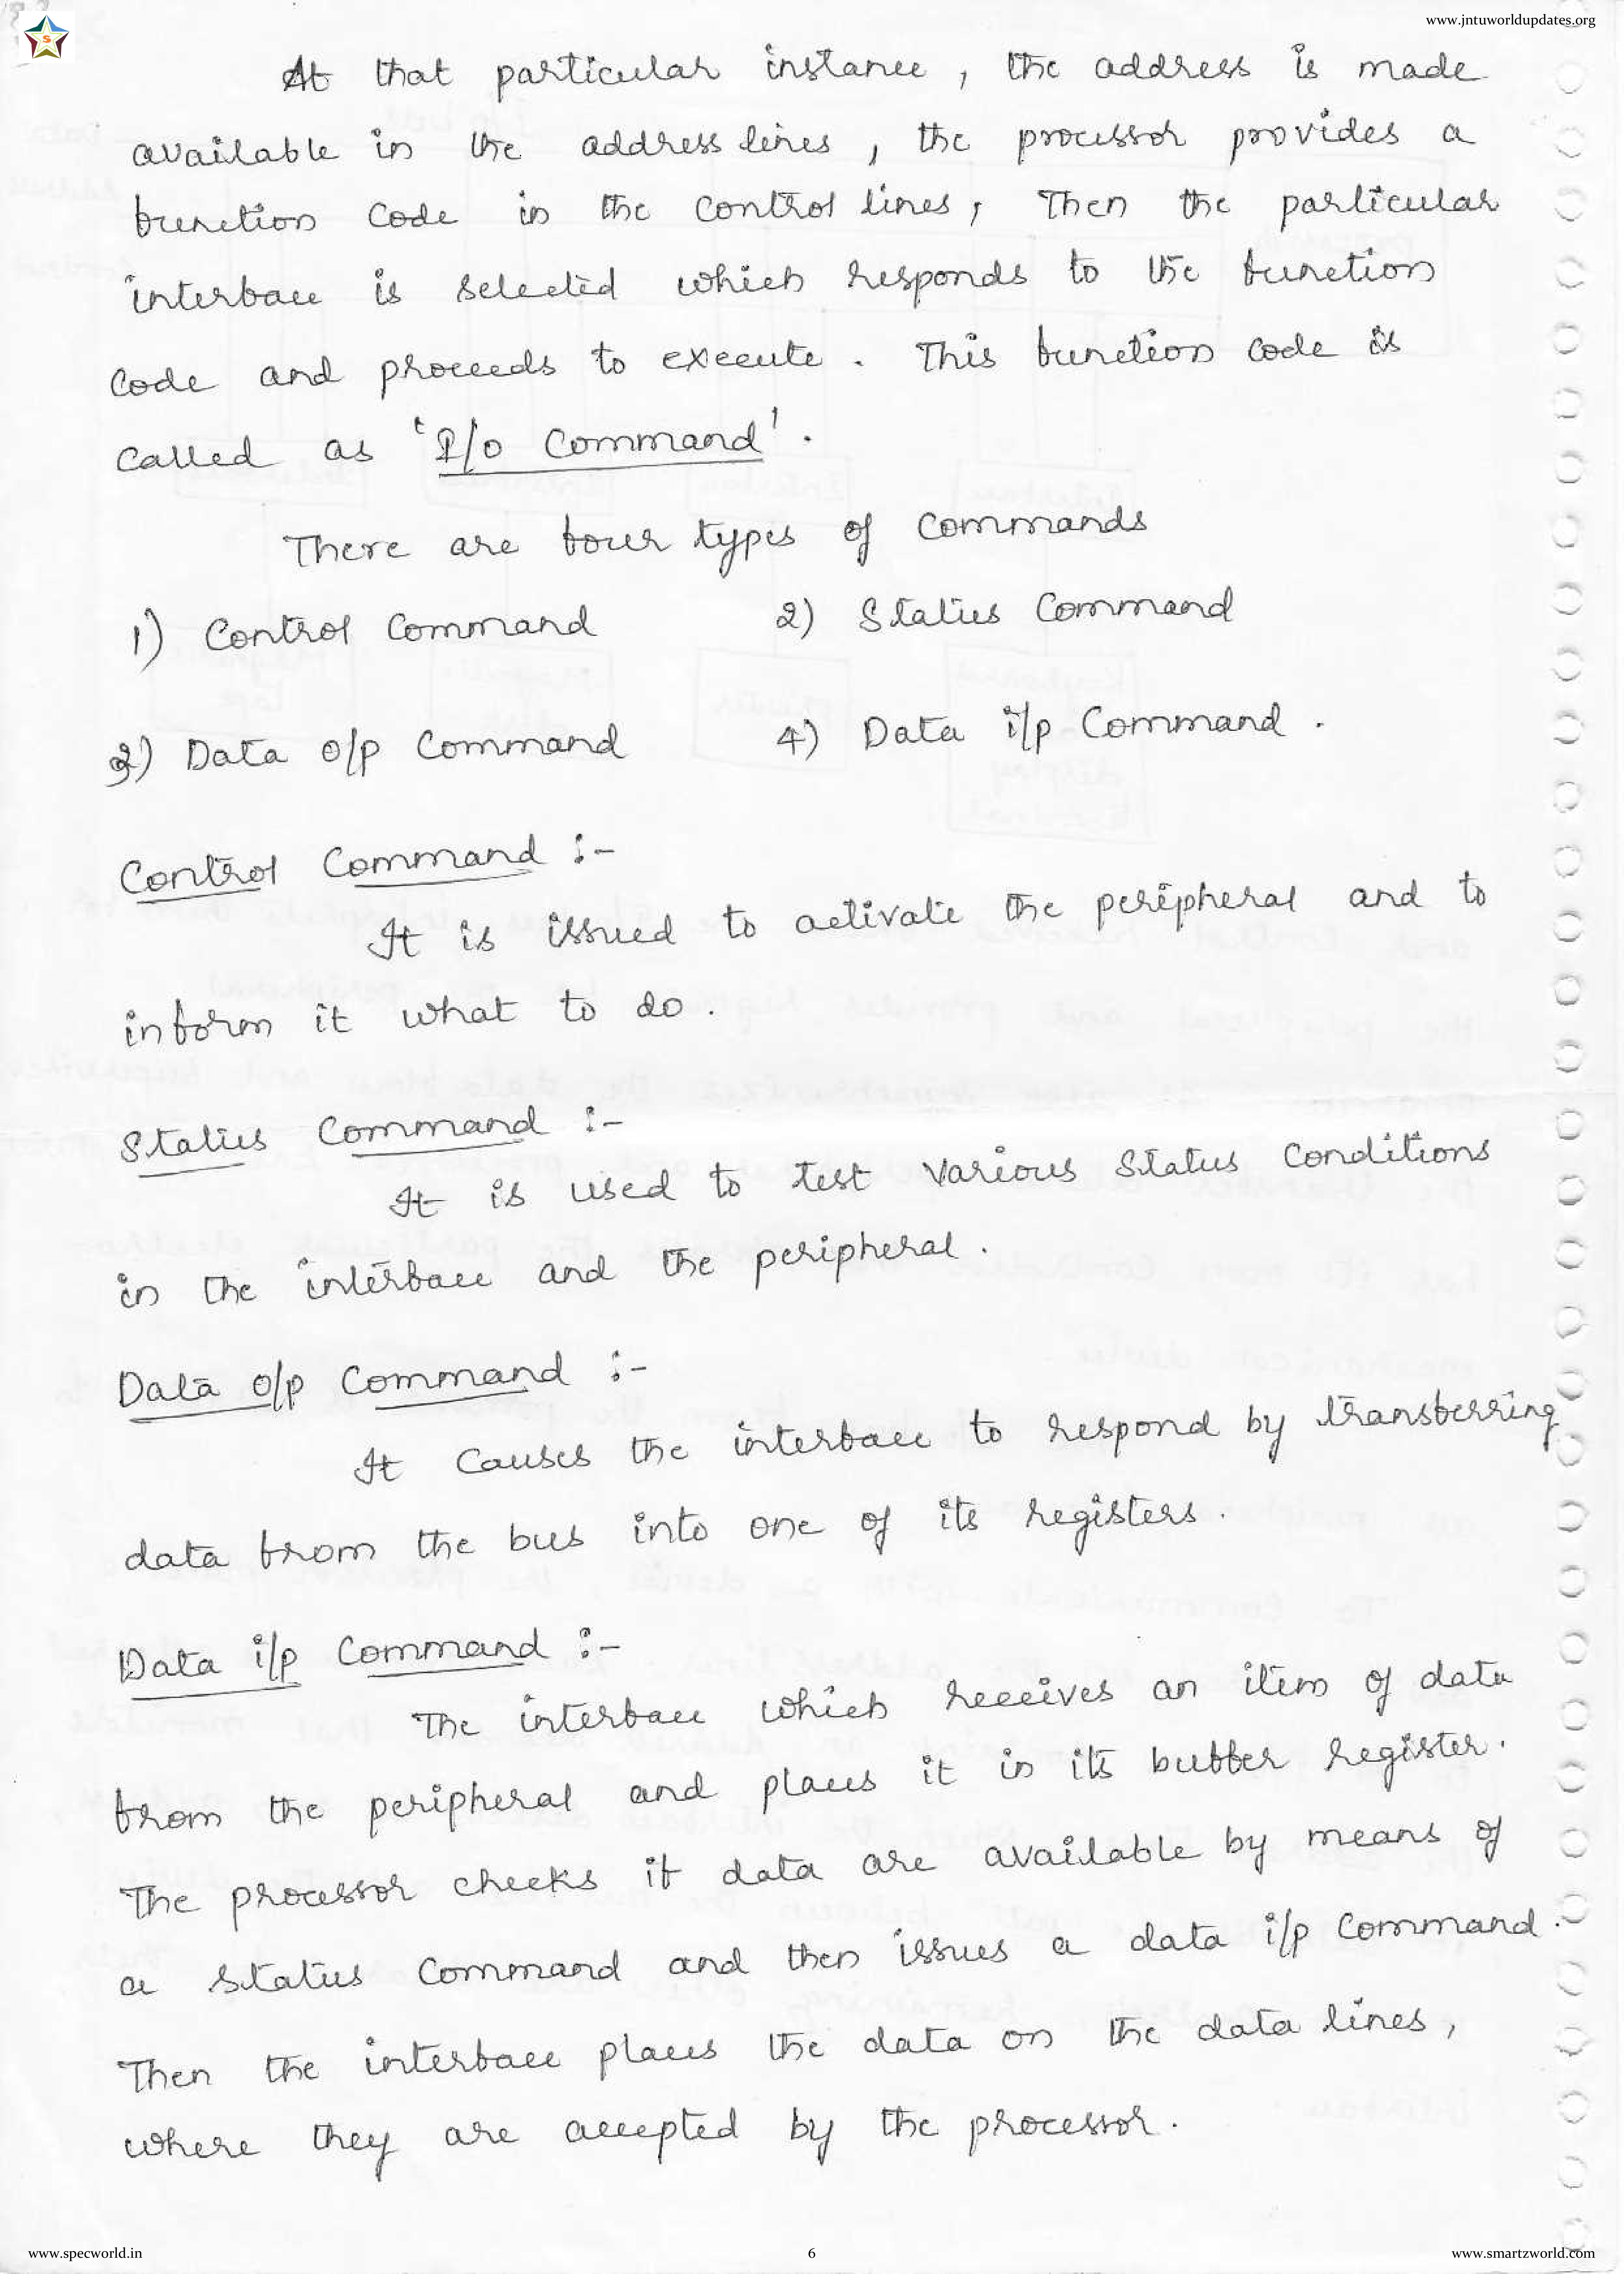 www.jntuworldupdates.org
S
At that particular instance, the address is made
available in the address lines, the processor provides a
function code in the control lines, Then the particular
interface is selected which responds to the function
code and proceeds to execute. This function code is
called as 'I/o Command'.
There are four types of commands
1) Control Command 2) Status Command
3) Data o/p Command 4) Data i/p Command.
Control Command :-
It is issued to activate the peripheral and to
inform it what to do.
Status Command :-
It is used to test various status conditions
in the interface and the peripheral.
Data o/p Command :-
It causes the interface to respond by transferring
data from the bus into one of its registers.
Data i/p Command :-
The interface which receives an item of data
from the peripheral and places it in its buffer register.
The processor checks if data are available by means of
a status command and then issues a data i/p command.
Then the interface places the data on the data lines,
where they are accepted by the processor.
www.specworld.in 6 www.smartzworld.com